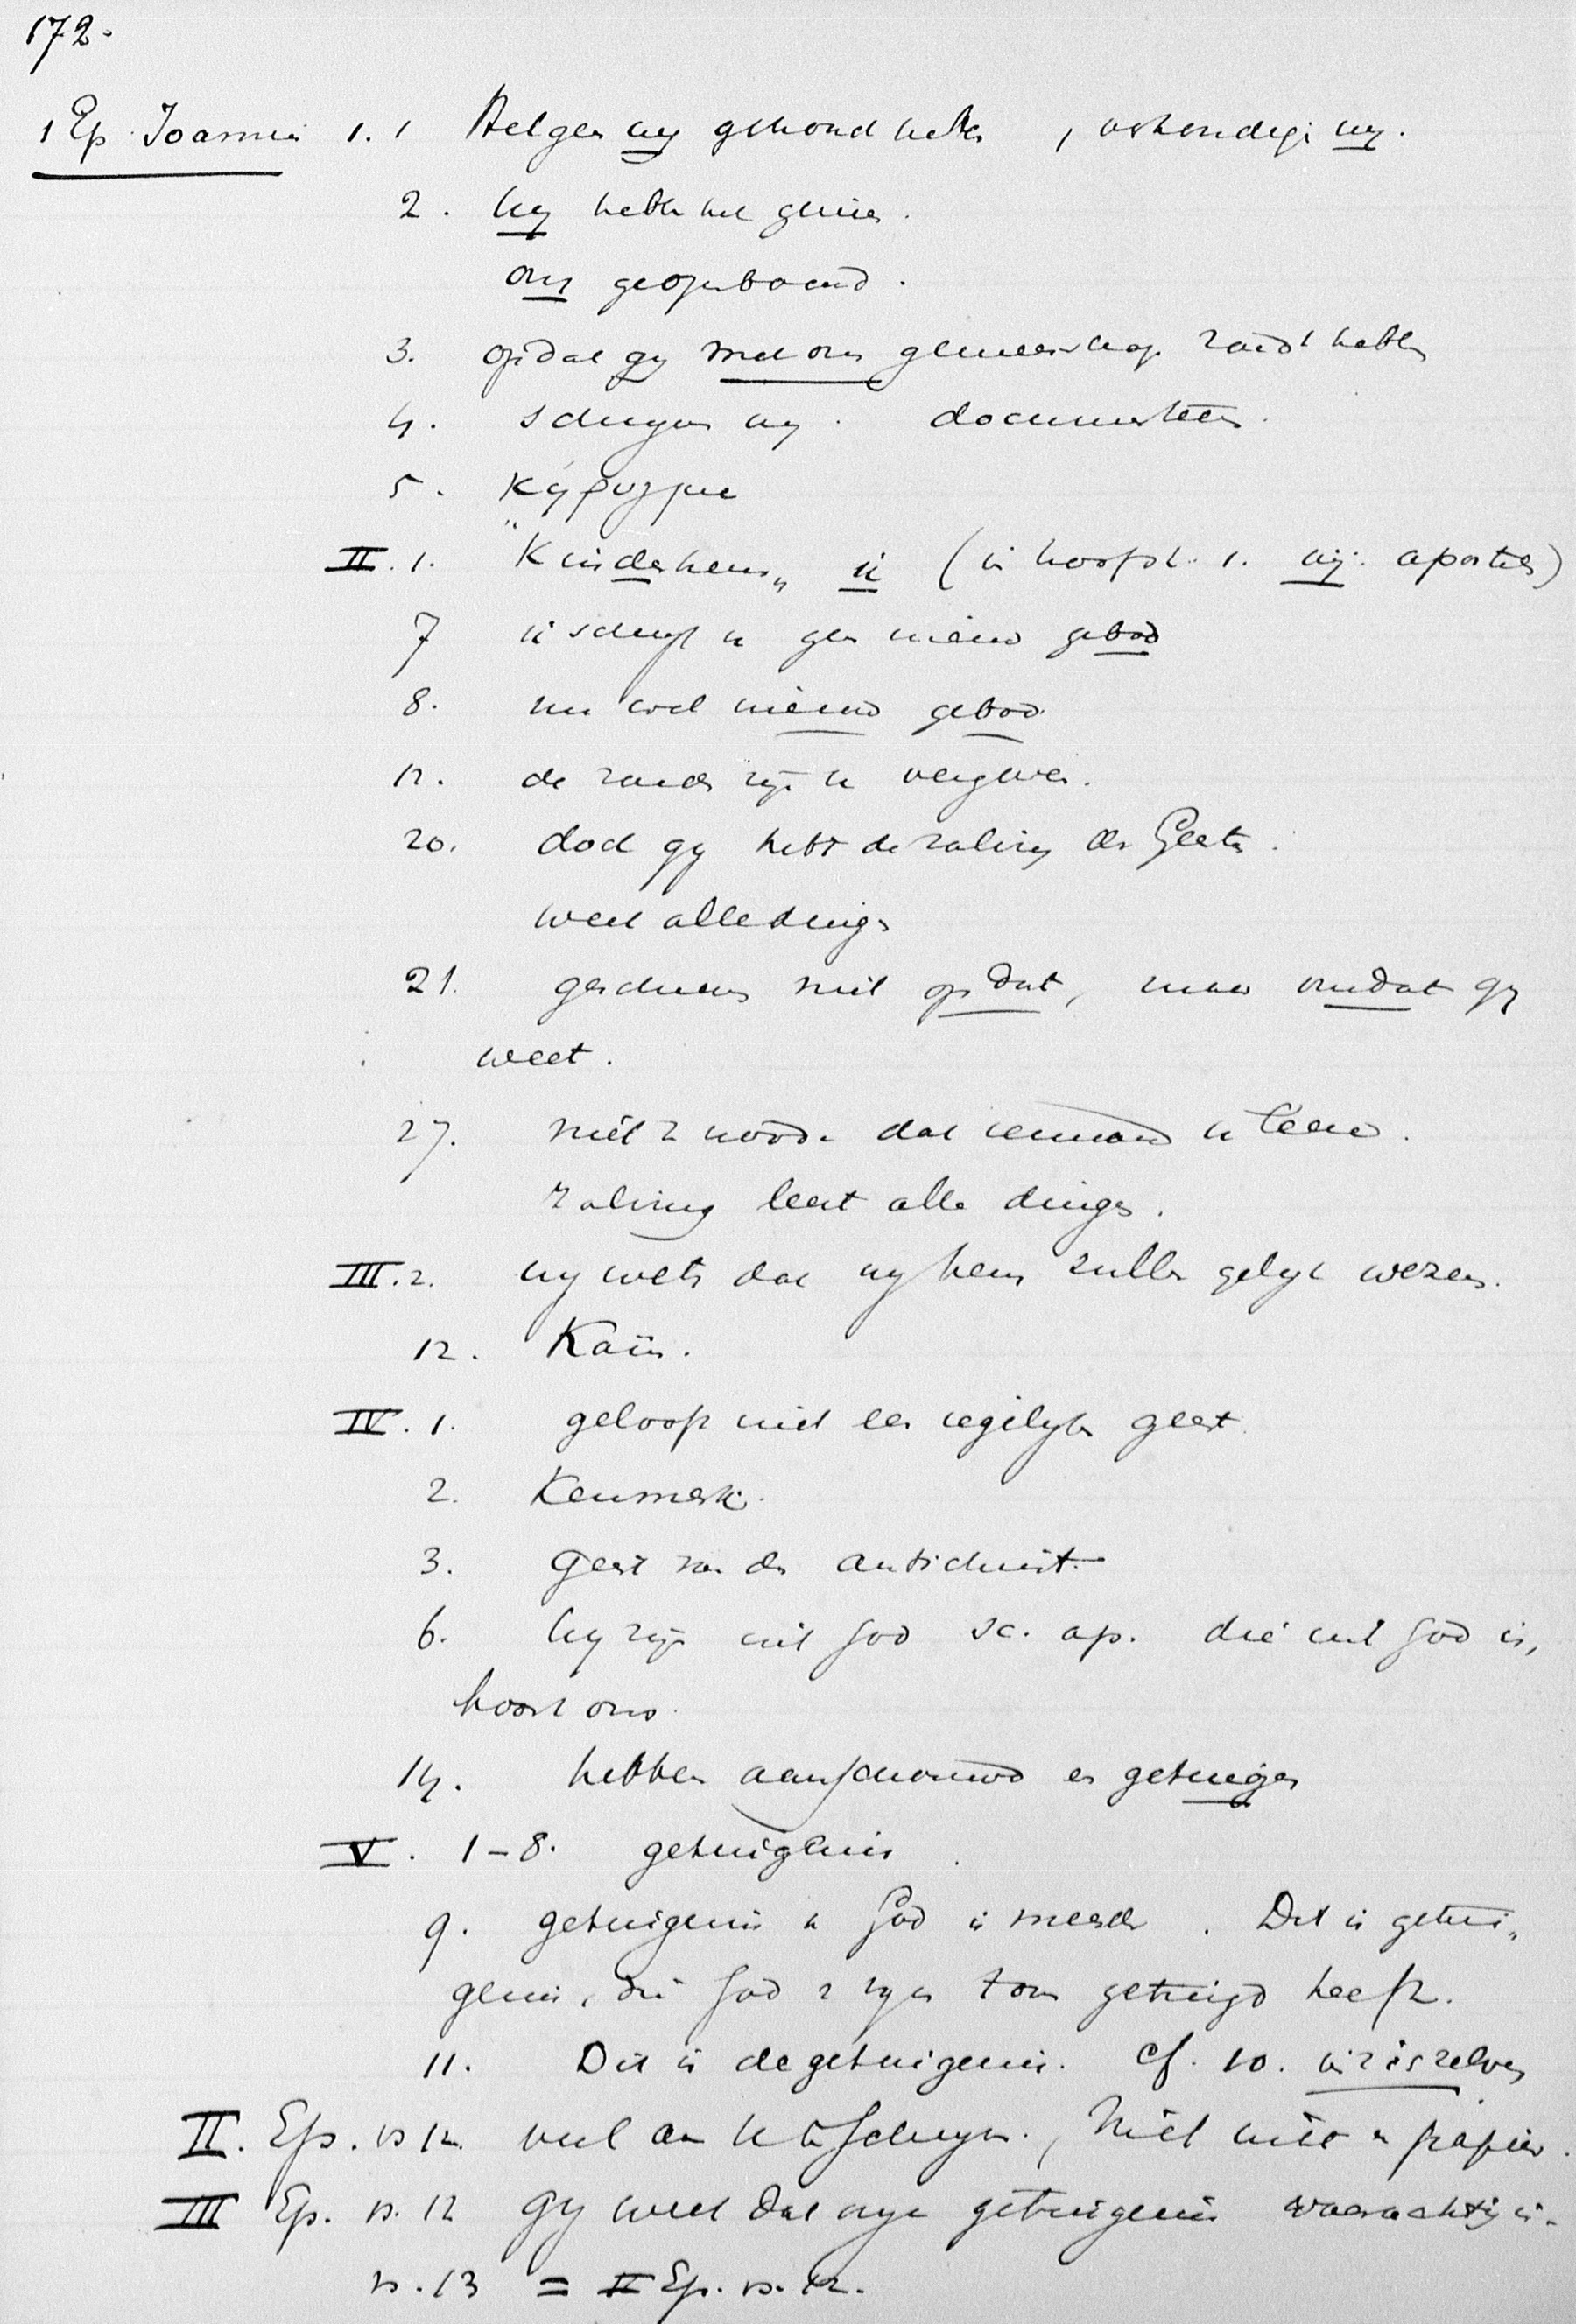 172.
1 Ep. Joannis 1. 1 Hetgeen wy gehoord hebben , verkondigen wy.
2. wy hebben het gezien.
ons geopenbaard.
3. opdat gy met ons gemeenschap zoudt hebben
4. schryven wy. documenteeren.
5. κήρυγμα
II. 1. "Kinderkens„ ik (in hoofdst. 1. wij: apostelen)
7 ik schryf u geen nieuw gebod
8. nu wel nieuw gebod.
12. de zonden zyn u vergeven.
20. doch gy hebt de zalving des Geestes.
weet alle dingen
21. geschreven niet opdat, maar omdat gy
weet.
27. niet van noode dat iemand u leere.
zalving leert alle dingen.
III. 2. wy weten dat wy hem zullen gelyk wezen.
12. Kaïn.
IV. 1. gelooft niet een iegelyken geest.
2. Kenmerk.
3. geest van den antichrist.
6. Wy zyn uit God sc. ap. die uit God is,
hoort ons.
14. hebben aanschouwd en getuigen
V. 1-8. getuigenis.
9. getuigenis v. God is meerder. Dit is getui„
genis, die God v. zyn Zoon getuigd heeft.
11. Dit is de getuigenis. cf. 10. in zich zelven
II. Ep. vs 12. veel aan u te schryven., Niet inkt en papier.
III Ep. vs. 12 Gy weet dat onze getuigenis waarachtig is.
vs. 13 = II Ep. vs. 12.